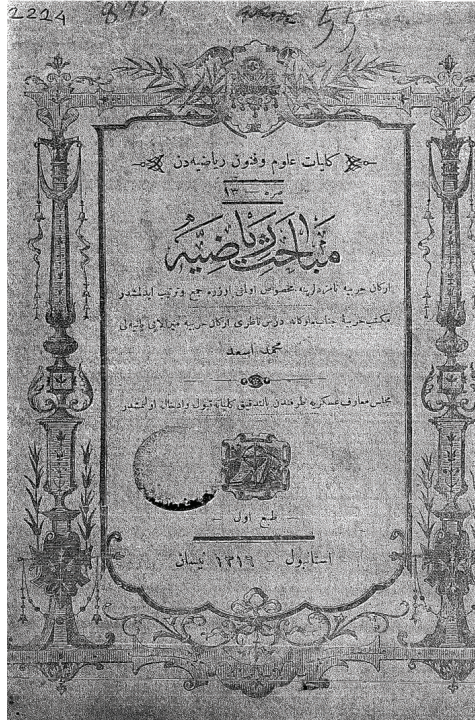 2224
كليات علوم و فنون رياضيه‌دن
نمره — ١٣
مباحث رياضيه
اركان حربيه نامزدلرينه مخصوص اولمق اوزره جمع و ترتيب ايدلمشدر
مكتب حربيۀ جناب ملوكانه درس ناظرى اركان حربيه ميرالايى
محمد اسعد
مجلس معارف عسكريه طرفندن بالتدقيق كلياته قبول و ادخال اولنمشدر
— طبع اول —
استانبول — ١٣١٩ نيسان